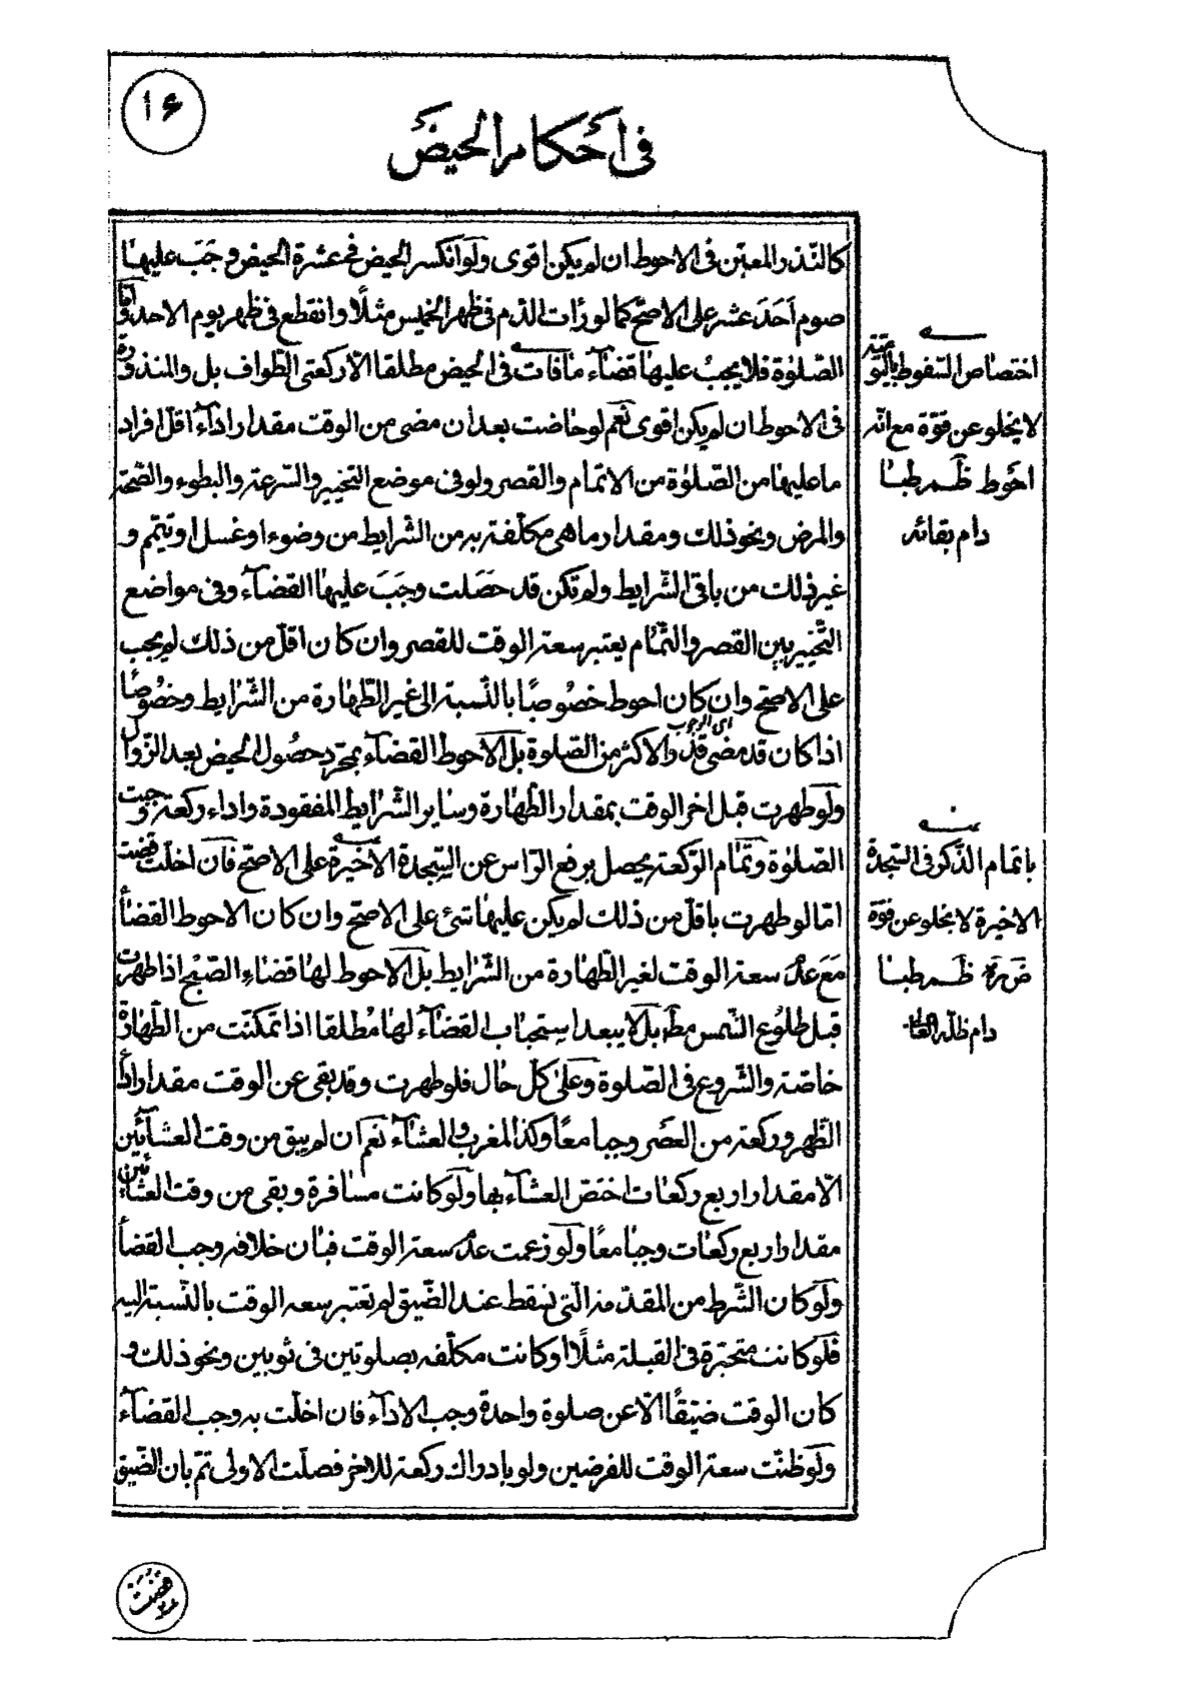 ١۶
في احكام الحيض
كالنّذر المعيّن في الاحوط ان لم يكن اقوى ولو انكسر الحيض في عشرة الحيض وجب عليها
صوم احد عشر على الاصحّ كما لو رات الدّم في ظهر الخميس مثلًا وانقطع في ظهر يوم الاحد وامّا
الصّلوة فلا يجب عليها قضاء ما فات في الحيض مطلقا الّا ركعتي الطّواف بل والمنذورة
في الاحوط ان لم يكن اقوى نعم لو حاضت بعد ان مضى من الوقت مقدار اداء اقلّ افراد
ما عليها من الصّلوة من الاتمام والقصر ولو في موضع التخيير والسّرعة والبطوء والصّحّة
والمرض ونحو ذلك ومقدار ما هي مكلّفة به من الشّرايط من وضوء او غسل او تيمّم و
غير ذلك من باقي الشّرايط ولم تكن قد حصلت وجب عليها القضاء وفي مواضع
التّخيير بين القصر والتّمام يعتبر سعة الوقت للقصر وان كان اقلّ من ذلك لم يجب
على الاصحّ وان كان احوط خصوصًا بالنّسبة الى غير الطّهارة من الشّرايط وخصوصًا
اذا كان قد مضى قدر الاكثر من الصّلوة بل الاحوط القضاء بمجرّد حصول الحيض بعد الزّوال
اى الوجوب
ولو طهرت قبل اخر الوقت بمقدار الطّهارة وساير الشّرايط المفقودة واداء ركعة وجبت
الصّلوة وتمام الرّكعة يحصل برفع الرّاس عن السّجدة الاخيرة على الاصحّ فان اخلّت قضت
امّا لو طهرت باقلّ من ذلك لم يكن عليها شئ على الاصحّ وان كان الاحوط القضاء
مع عدم سعة الوقت لغير الطّهارة من الشّرايط بل الاحوط لها قضاء الصّبح اذا طهرت
قبل طلوع الشّمس مطلقا بل لا يبعد استحباب القضاء لها مطلقا اذا تمكّنت من الطّهارة
خاصّة والشّروع في الصّلوة وعلى كلّ حال فلو طهرت وقد بقى من الوقت مقدار اداء
الظّهر وركعة من العصر وجبا معًا وكذا المغرب والعشاء نعم ان لم يبق من وقت العشائين
الّا مقدار اربع ركعات اختصّ العشاء بها ولو كانت مسافرة وبقى من وقت العشائين
مقدار اربع ركعات وجبا معًا ولو زعمت عدم سعة الوقت فبان خلافه وجب القضاء
ولو كان الشّرط من المقدّمة الّتي يسقط عند الضّيق لم تعتبر سعة الوقت بالنّسبة اليه
فلو كانت متحيّرة في القبلة مثلًا او كانت مكلّفه بصلوتين في ثوبين ونحو ذلك و
كان الوقت ضيّقًا الّا عن صلوة واحدة وجب الاداء فان اخلّت به وجب القضاء
ولو ظنّت سعة الوقت للفرضين ولو بادراك ركعة للاخر فصلّت الاولى ثمّ بان الضّيق
اختصاص السّقوط باليوميّة
لا يخلو عن قوّة مع انّه
احوط ظمّ طبا
دام بقائه
باتمام الذّكر في السّجدة
الاخيرة لا يخلو عن قوّة
ظمّ طبا
دام ظلّه العالى